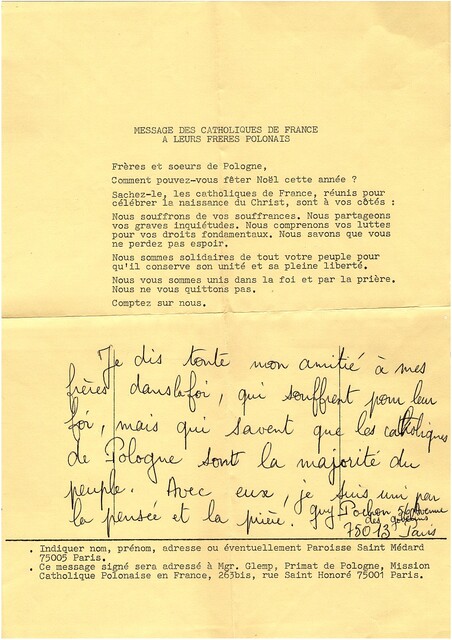 MESSAGE DES CATHOLIQUES DE FRANCE
A LEURS FRERES POLONAIS
Frères et soeurs de Pologne,
Comment pouvez-vous fêter Noël cette année ?
Sachez-le, les catholiques de France, réunis pour
célébrer la naissance du Christ, sont à vos côtés :
Nous souffrons de vos souffrances. Nous partageons
vos graves inquiétudes. Nous comprenons vos luttes
pour vos droits fondamentaux. Nous savons que vous
ne perdez pas espoir.
Nous sommes solidaires de tout votre peuple pour
qu'il conserve son unité et sa pleine liberté.
Nous vous sommes unis dans la foi et par la prière.
Nous ne vous quittons pas.
Comptez sur nous.
Je dis toute mon amitié à mes
frères dans la foi, qui souffrent pour leur
foi, mais qui savent que les catholiques
de Pologne sont la majorité du
peuple. Avec eux, je suis uni par
la pensée et la prière. Guy Pochon 56 Avenue
des gobelins
75013 Paris
. Indiquer nom, prénom, adresse ou éventuellement Paroisse Saint Médard
75005 Paris.
. Ce message signé sera adressé à Mgr. Glemp, Primat de Pologne, Mission
Catholique Polonaise en France, 263bis, rue Saint Honoré 75001 Paris.